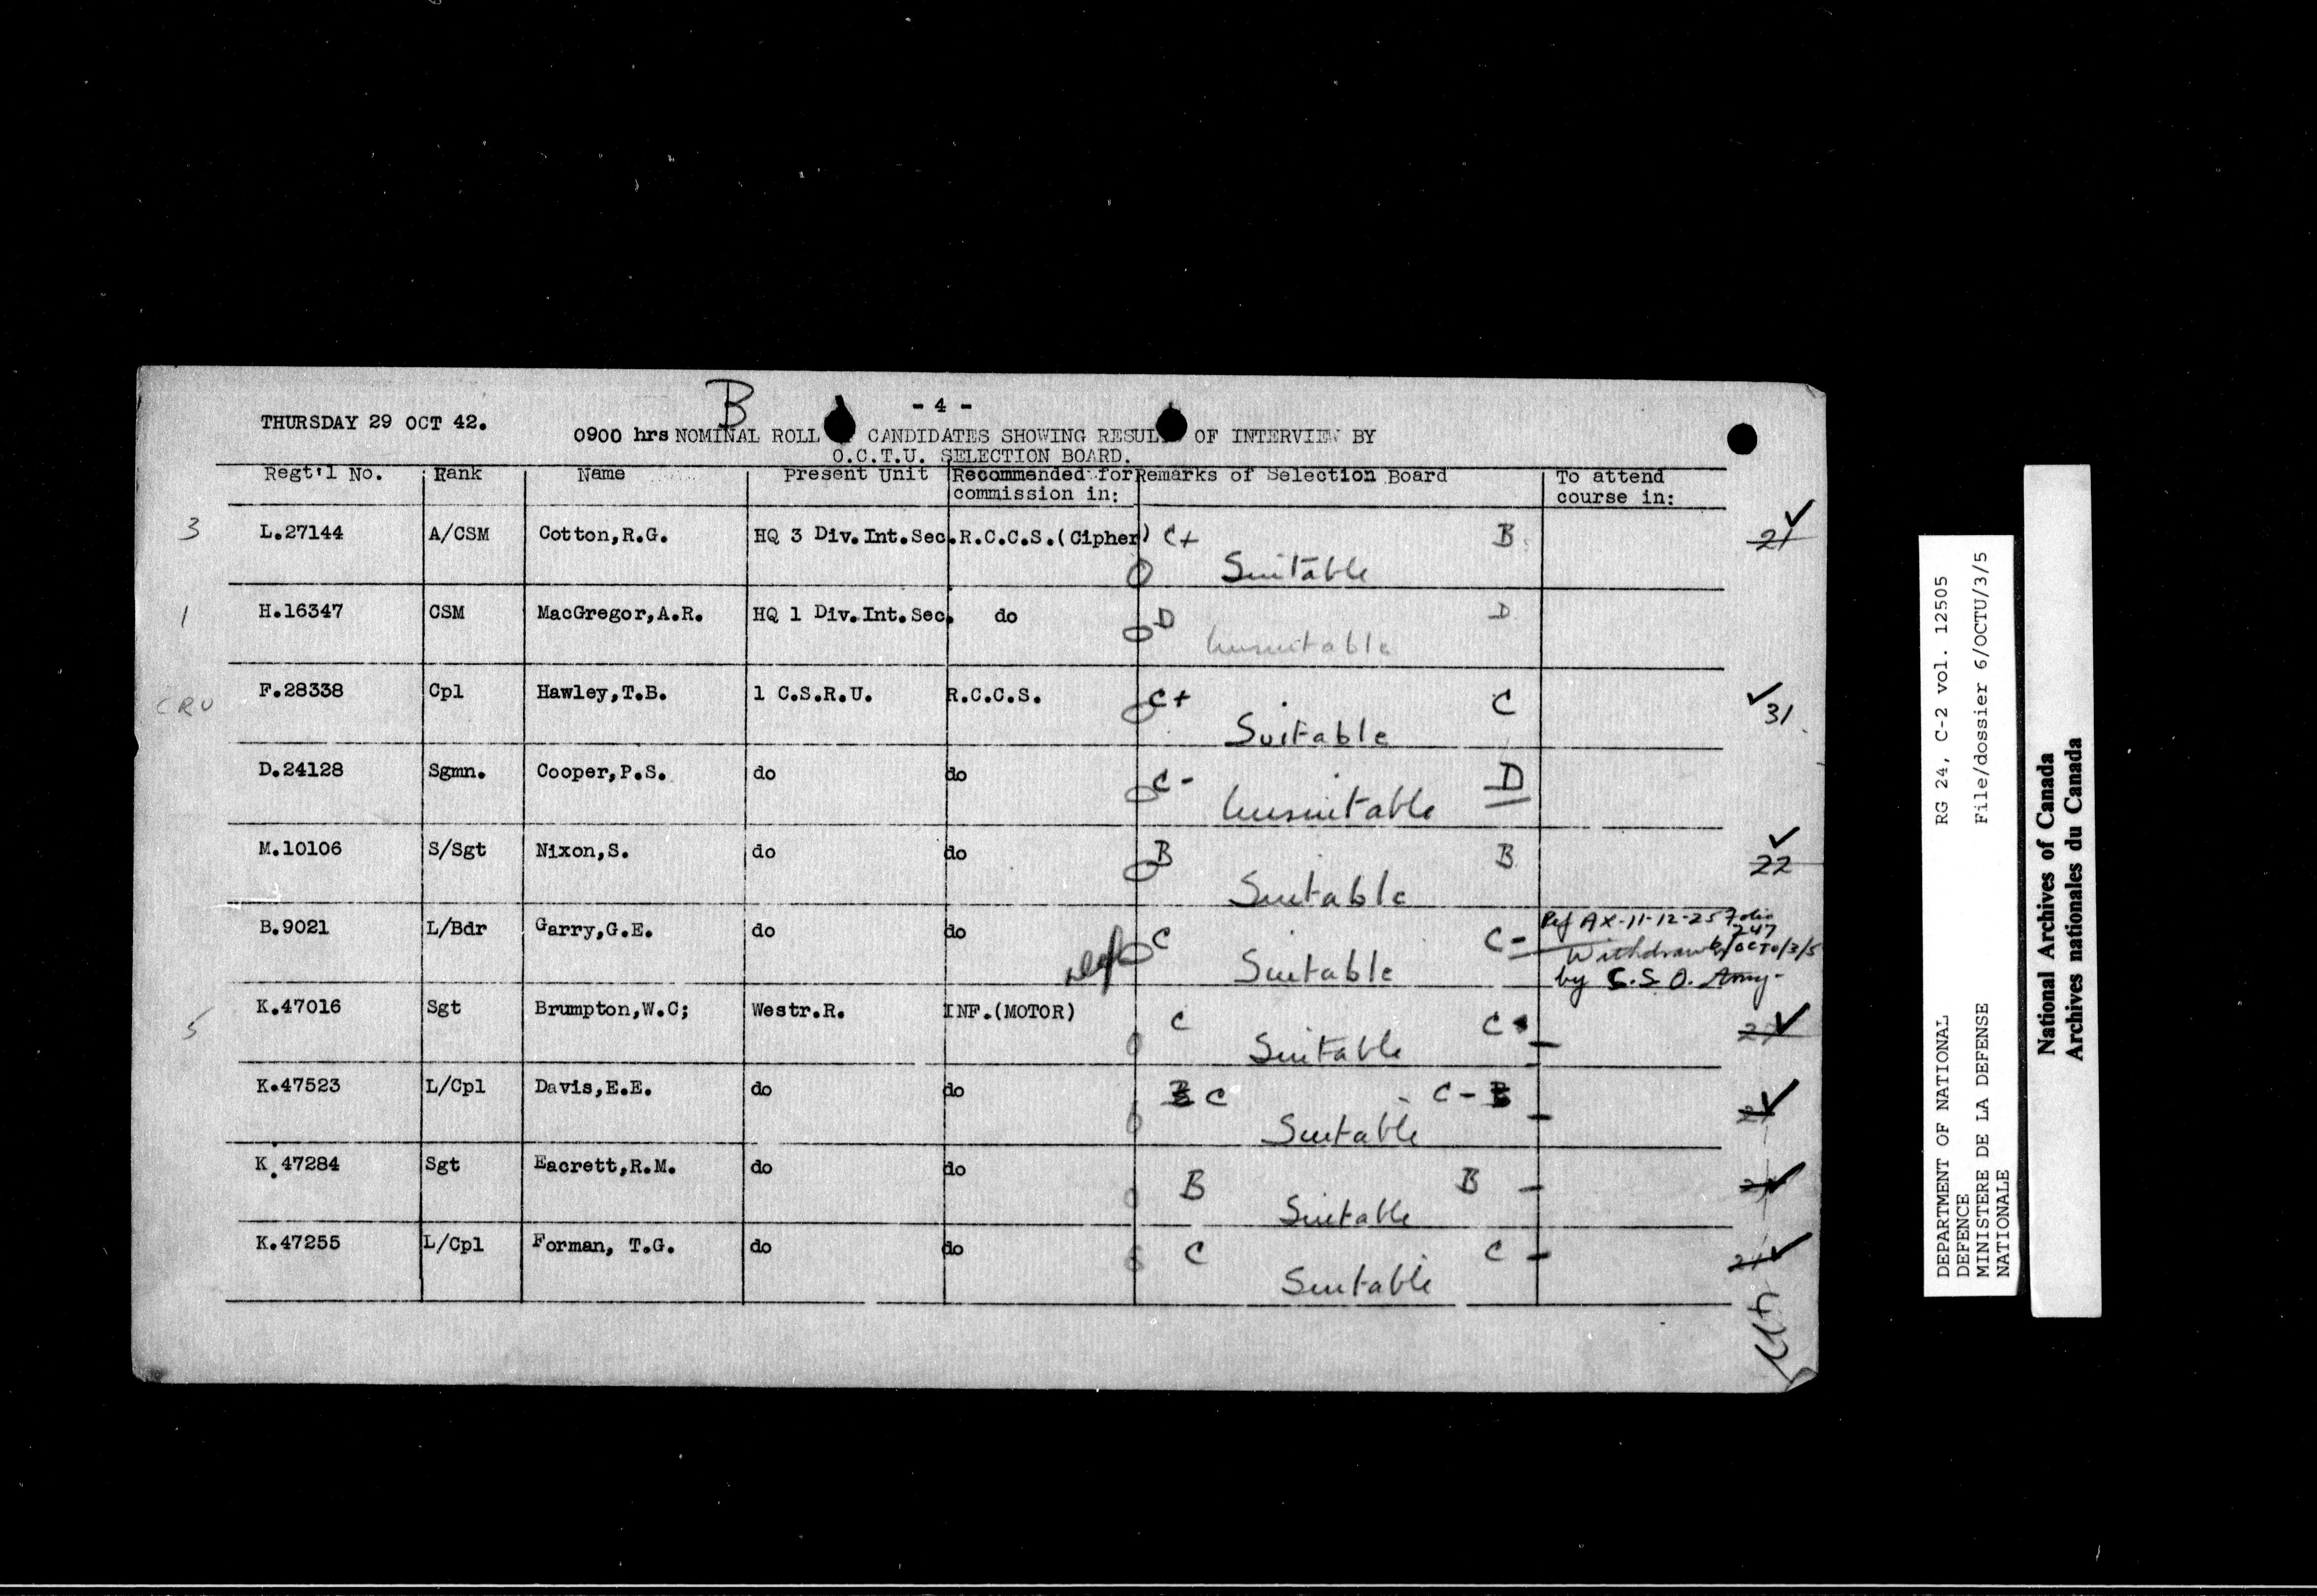 B
- 4 -
THURSDAY 29 OCT 42.
0900 hrs NOMINAL ROLL CANDIDATES SHOWING RESUL OF INTERVIEW BY
O.C.T.U. SELECTION BOARD.
Regt'l No. Rank Name Present Unit Recommended for commission in: Remarks of Selection Board To attend course in:
3 L.27144 A/CSM Cotton,R.G. HQ 3 Div.Int.Sec. R.C.C.S.(Cipher) C+ B 21
Suitable
1 H.16347 CSM MacGregor,A.R. HQ 1 Div.Int.Sec. do D D
Unsuitable
CRU F.28338 Cpl Hawley,T.B. 1 C.S.R.U. R.C.C.S. C+ C 31
Suitable
D.24128 Sgmn. Cooper,P.S. do do C- D
Unsuitable
M.10106 S/Sgt Nixon,S. do do B B 22
Suitable
B.9021 L/Bdr Garry,G.E. do do C C-
Suitable
Ref AX-11-12-25 Folio
247
Withdrawn 6/OCTU/3/5
by C.S.O. Army
5 K.47016 Sgt Brumpton,W.C; Westr.R. INF.(MOTOR) C C
Suitable
K.47523 L/Cpl Davis,E.E. do do B C C - B
Suitable
K.47284 Sgt Eacrett,R.M. do do B B
Suitable
K.47255 L/Cpl Forman, T.G. do do C C 21
Suitable
DEPARTMENT OF NATIONAL DEFENCE
MINISTERE DE LA DEFENSE NATIONALE
RG 24, C-2 vol. 12505
File/dossier 6/OCTU/3/5
National Archives of Canada
Archives nationales du Canada